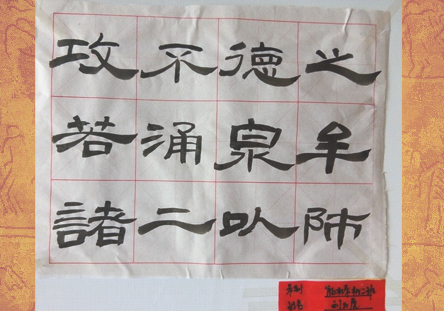 之牟師
德泉以
不涌二
攻若諸